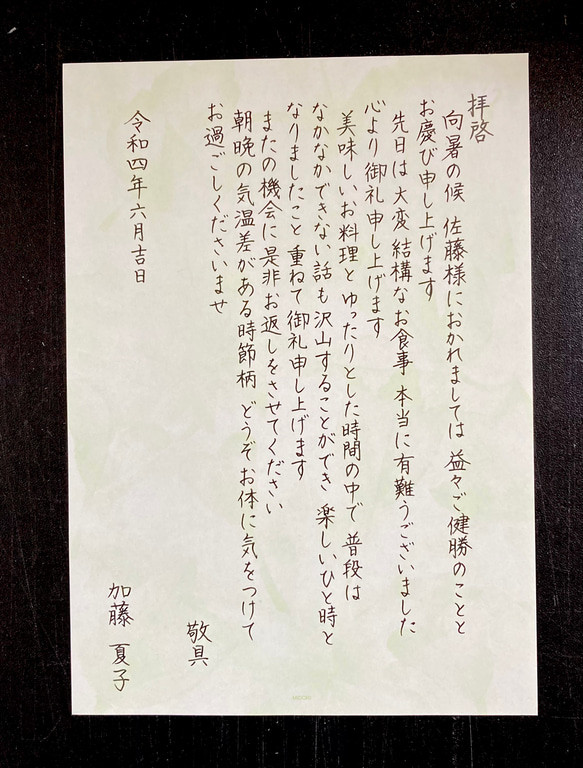 拝啓
向暑の候 佐藤様におかれましては 益々ご健勝のことと
お慶び申し上げます
先日は大変結構なお食事 本当に有難うございました
心より御礼申し上げます
美味しいお料理と ゆったりとした時間の中で 普段は
なかなかできない話も沢山することができ 楽しいひと時と
なりましたこと 重ねて御礼申し上げます
またの機会に是非お返しをさせてください
朝晩の気温差がある時節柄 どうぞお体に気をつけて
お過ごしくださいませ
敬具
令和四年六月吉日
加藤 夏子